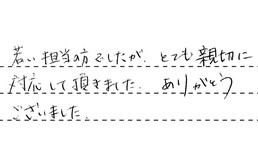 若い担当の方でしたが、とても親切に
対応して頂きました。ありがとう
ございました。